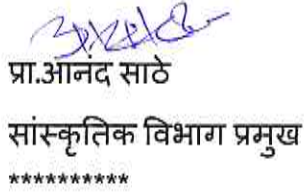 प्रा.आनंद साठे
सांस्कृतिक विभाग प्रमुख
**********